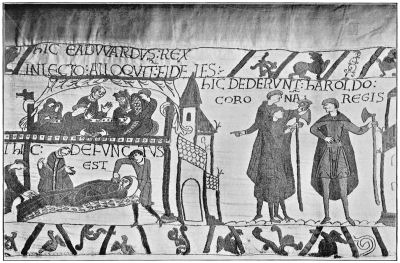 hIC EADVVARDVS: REX
IN LECTO: ALLOQVIT: FIDELES:
ET hIC: DEFVNCTVS
EST
hIC DEDERVNT: hAROLDO:
CORO NA REGIS